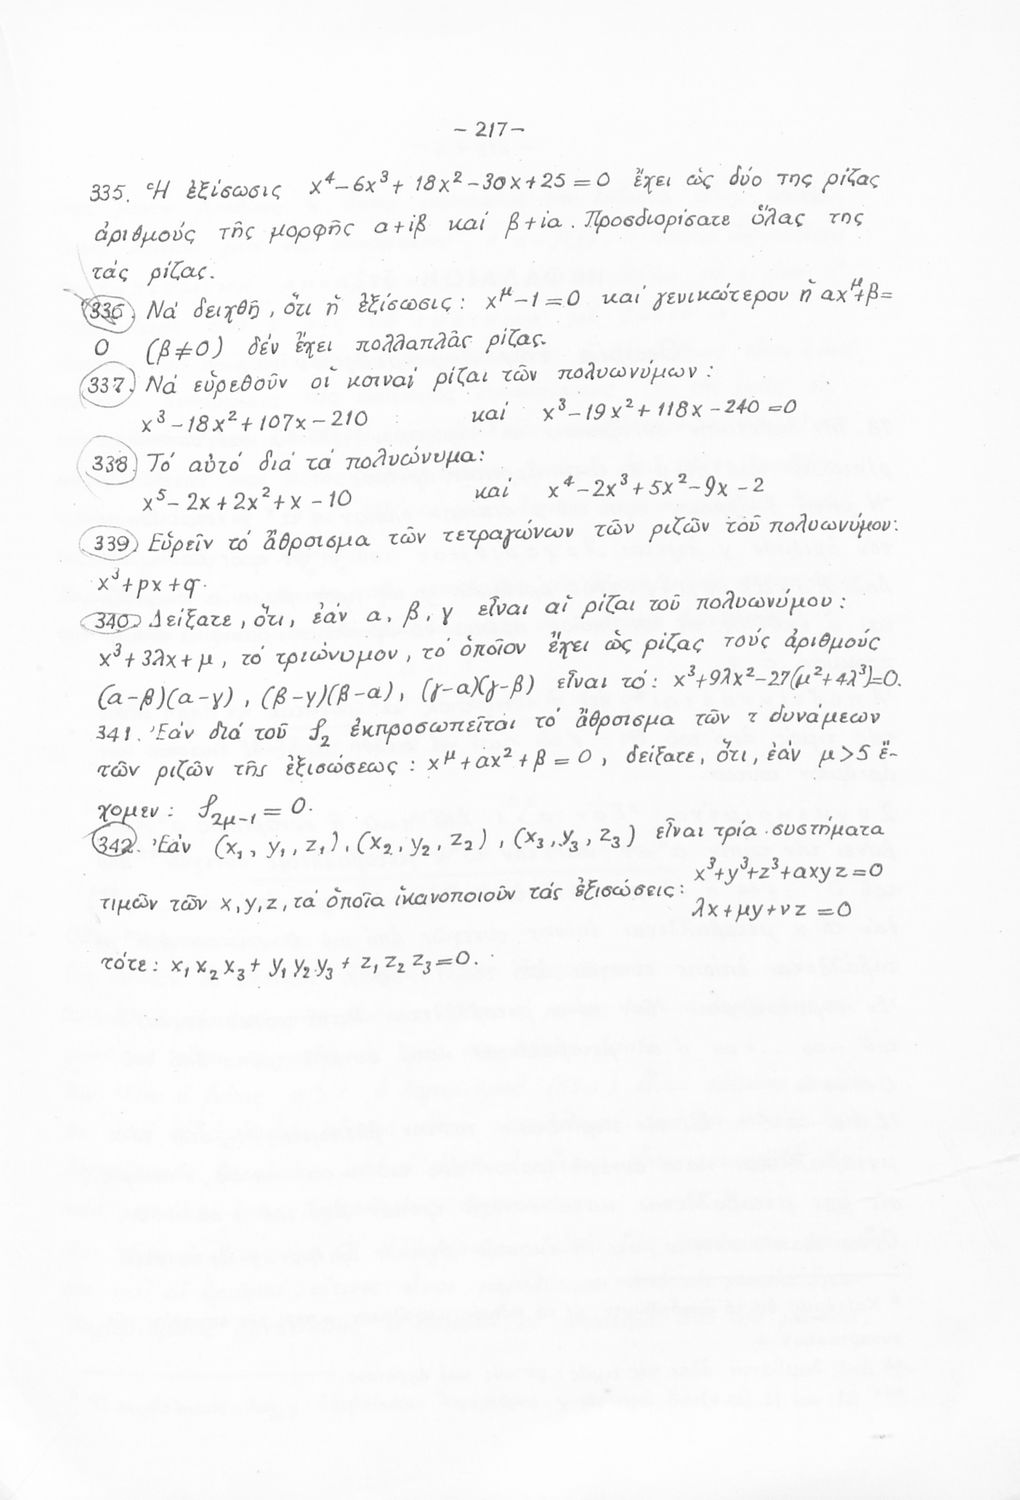 - 217 -
335. Ἡ ἐξίσωσις x⁴-6x³+18x²-30x+25=0 ἔχει ὡς δύο της ρίζας
ἀριθμούς τῆς μορφῆς α+iβ καί β+iα. Προσδιορίσατε ὅλας της
τάς ρίζας.
336. Νά δειχθῇ, ὅτι ἡ ἐξίσωσις: x^μ-1=0 καί γενικώτερον ἡ αx^μ+β=
0 (β≠0) δέν ἔχει πολλαπλᾶς ρίζας.
337. Νά εὑρεθοῦν οἱ κοιναί ρίζαι τῶν πολυωνύμων:
x³-18x²+107x-210 καί x³-19x²+118x-240=0
338. Τό αὐτό διά τά πολυώνυμα:
x⁵-2x+2x²+x-10 καί x⁴-2x³+5x²-9x-2
339. Εὑρεῖν τό ἄθροισμα τῶν τετραγώνων τῶν ριζῶν τοῦ πολυωνύμου:
x³+px+q.
340. Δείξατε, ὅτι, ἐάν α, β, γ εἶναι αἱ ρίζαι τοῦ πολυωνύμου:
x³+3λx+μ, τό τριώνυμον, τό ὁποῖον ἔχει ὡς ρίζας τούς ἀριθμούς
(α-β)(α-γ), (β-γ)(β-α), (γ-α)(γ-β) εἶναι τό: x³+9λx²-27(μ²+4λ³)=0.
341. Ἐάν διά τοῦ S₂ ἐκπροσωπεῖται τό ἄθροισμα τῶν τ δυνάμεων
τῶν ριζῶν τῆς ἐξισώσεως: x^μ+αx²+β=0, δείξατε, ὅτι, ἐάν μ>5 ἔ-
χομεν: S₂μ₋₁=0.
342. Ἐάν (x₁, y₁, z₁), (x₂, y₂, z₂), (x₃, y₃, z₃) εἶναι τρία συστήματα
τιμῶν τῶν x, y, z, τά ὁποῖα ἱκανοποιοῦν τάς ἐξισώσεις: x³+y³+z³+αxyz=0
λx+μy+νz=0
τότε: x₁x₂x₃+y₁y₂y₃+z₁z₂z₃=0.